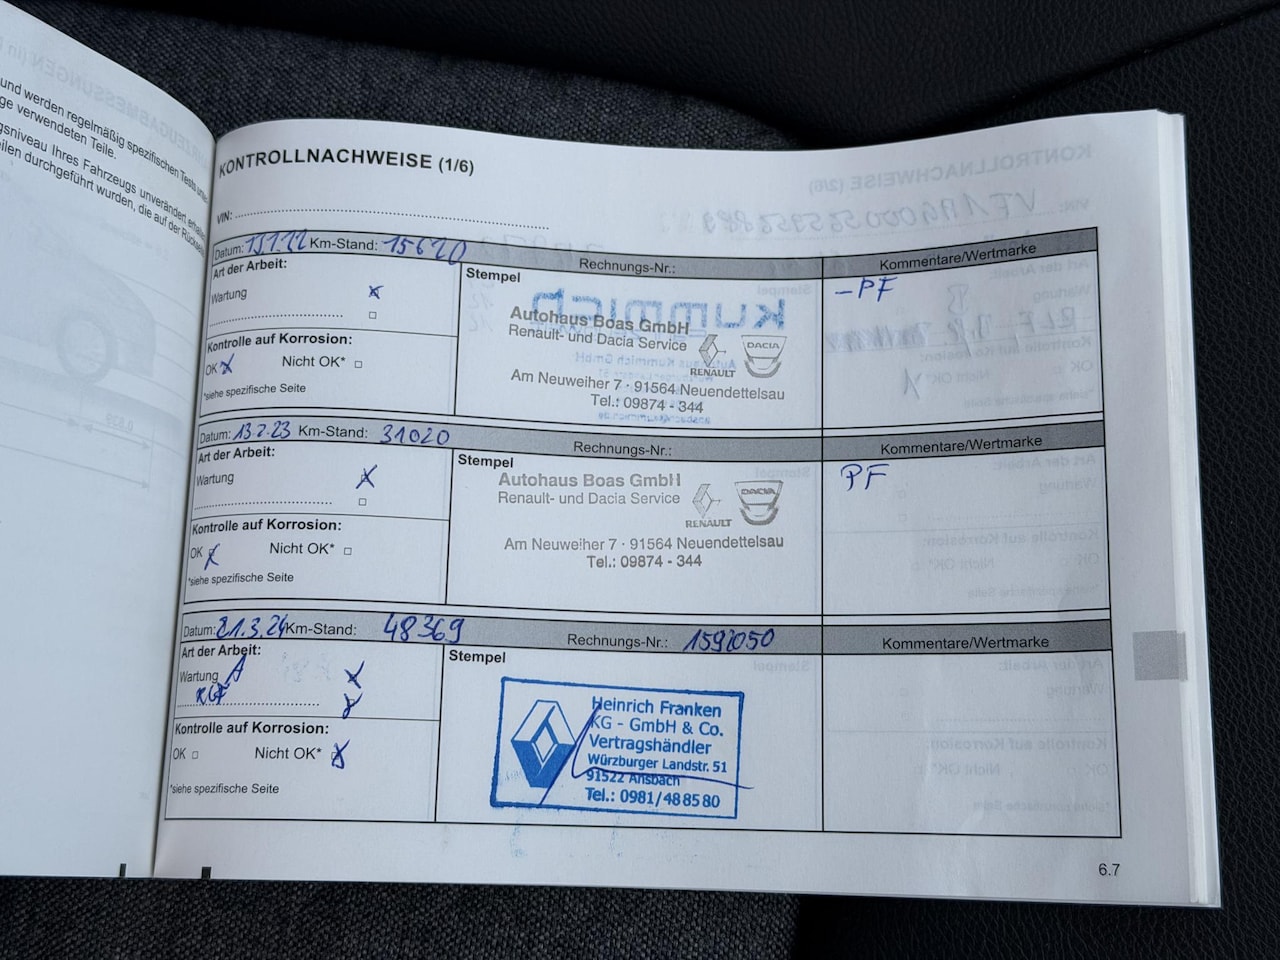 und werden regelmäßig spezifischen Tests
ge verwendeten Teile.
gsniveau Ihres Fahrzeugs unverändert
eilen durchgeführt wurden, die auf der
KONTROLLNACHWEISE (1/6)
VIN:
Datum: Km-Stand: 15620 Rechnungs-Nr.: Kommentare/Wertmarke
Art der Arbeit:
Wartung
Kontrolle auf Korrosion:
OK Nicht OK*
*siehe spezifische Seite
Stempel
Autohaus Boas GmbH
Renault- und Dacia Service
RENAULT
DACIA
Am Neuweiher 7 · 91564 Neuendettelsau
Tel.: 09874 - 344
- PF
Datum: 13.2.23 Km-Stand: 31020 Rechnungs-Nr.: Kommentare/Wertmarke
Art der Arbeit:
Wartung
Kontrolle auf Korrosion:
OK Nicht OK*
*siehe spezifische Seite
Stempel
Autohaus Boas GmbH
Renault- und Dacia Service
RENAULT
DACIA
Am Neuweiher 7 · 91564 Neuendettelsau
Tel.: 09874 - 344
PF
Datum: 21.3.24 Km-Stand: 48369 Rechnungs-Nr.: Kommentare/Wertmarke
Art der Arbeit:
Wartung A
Kontrolle auf Korrosion:
OK Nicht OK*
*siehe spezifische Seite
Stempel
Heinrich Franken
KG - GmbH & Co.
Vertragshändler
Würzburger Landstr. 51
91522 Ansbach
Tel.: 0981/48 85 80
6.7